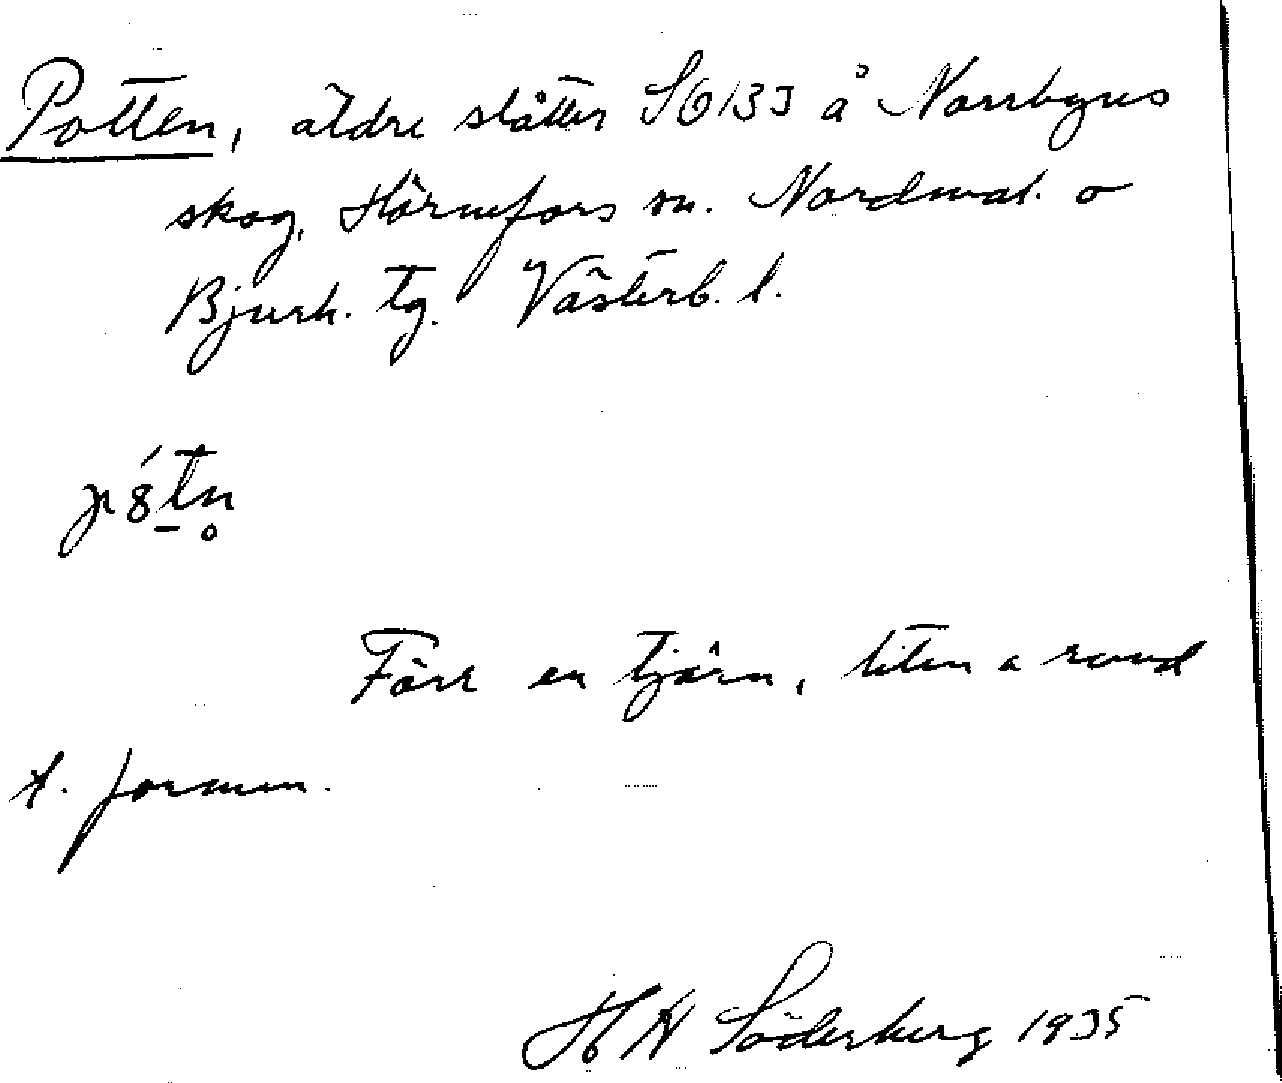 Potten, äldre slåtter SO133 å Norrbyns
skog, Hörnefors sn. Nordmal. o
Bjurh. tg. Västerb. l.
Förr en tjärn, liten o rund
t. formen.
H Söderberg 1935